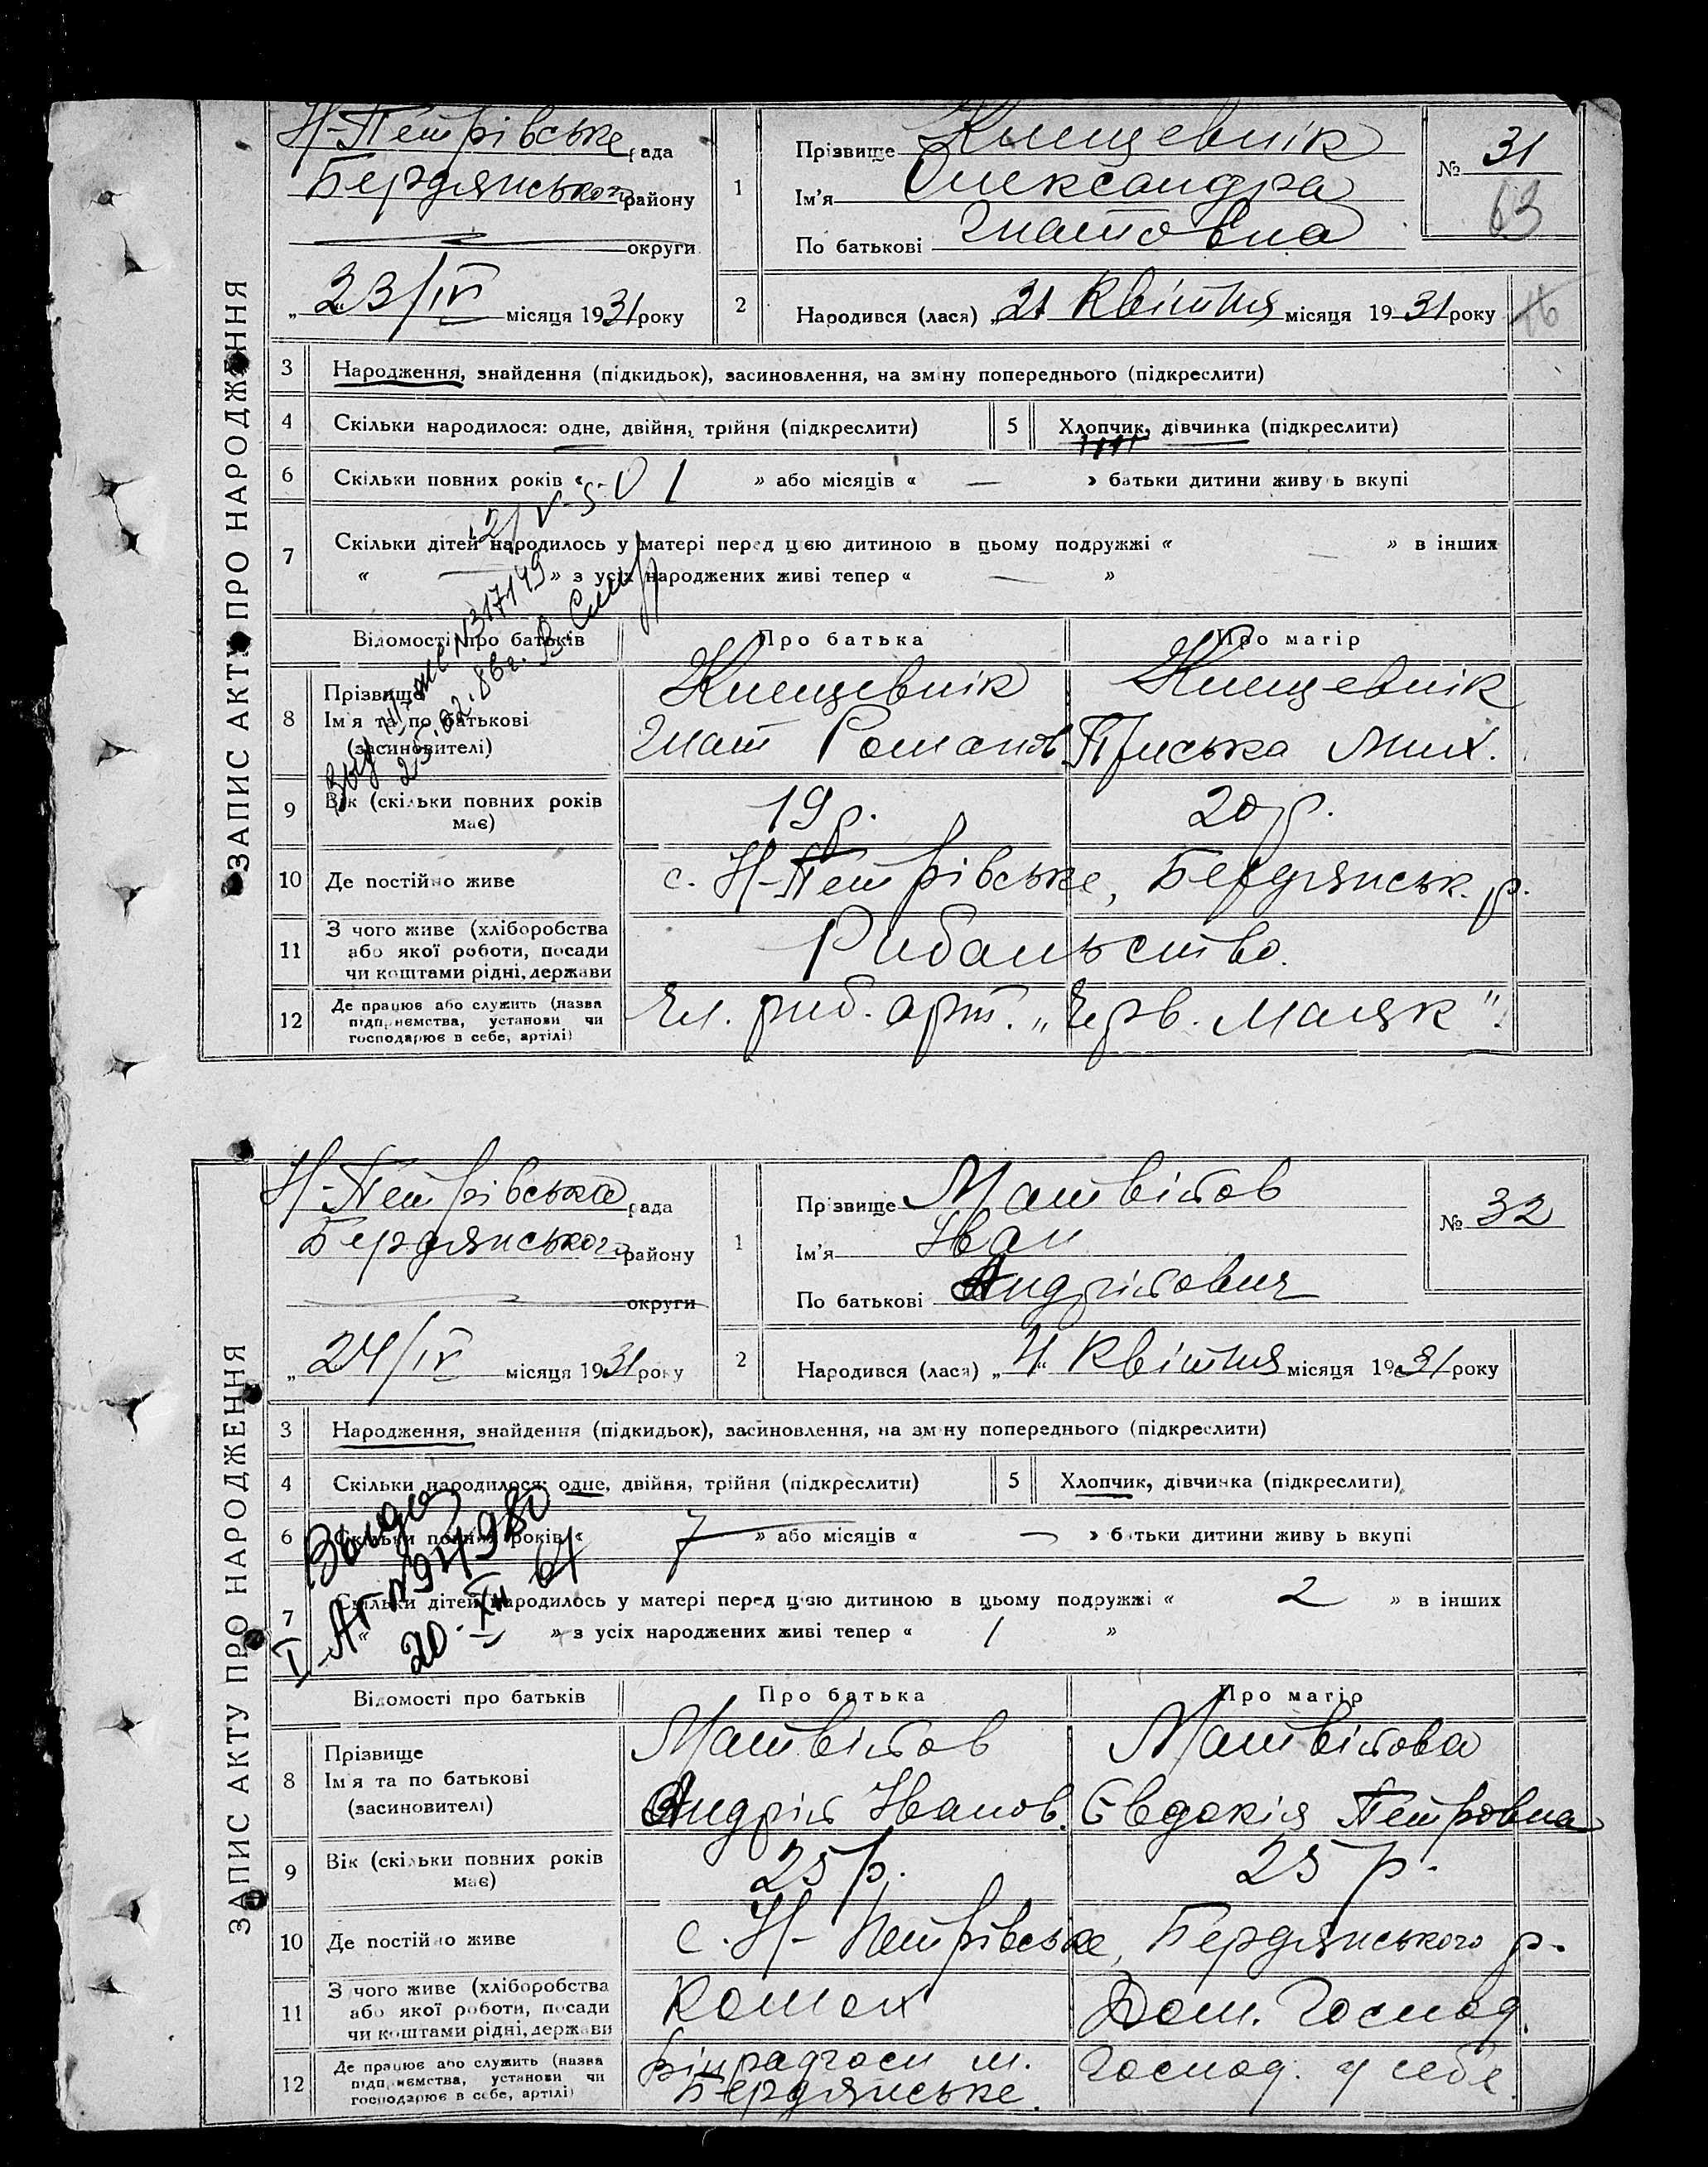 ЗАПИС АКТУ ПРО НАРОДЖЕННЯ
Н-Петрівське рада
Бердянського району
округи
„23/IV місяця 1931 року
1
Прізвище Клещевнік
Ім'я Олександра
По батькові Гнатовна
№ 31
63
2
Народився (лася) „21 Квітня місяця 1931 року
16
3 Народження, знайдення (підкидьок), засиновлення, на зміну попереднього (підкреслити)
4 Скільки народилося: одне, двійня, трійня (підкреслити)
5 Хлопчик, дівчинка (підкреслити)
6 Скільки повних років « 1 » або місяців « — » батьки дитини живуть вкупі
7 Скільки дітей народилось у матері перед цією дитиною в цьому подружжі « — » в інших
« — » з усіх народжених живі тепер « — »
№317149
25.02.86г.
Відомості про батьків
Про батька
Про матір
8 Прізвище
Ім'я та по батькові
(засиновителі)
Клещевнік
Гнат Романов.
Клещевнік
Пріська Мих.
9 Вік (скільки повних років має)
19 р.
20 р.
10 Де постійно живе
с. Н-Петрівське, Бердянськ. р.
11 З чого живе (хліборобства
або якої роботи, посади
чи коштами рідні, держави
Рибальство.
12 Де працює або служить (назва
підприємства, установи чи
господарює в себе, артілі)
Чл. риб. арт. „Черв. Маяк".
ЗАПИС АКТУ ПРО НАРОДЖЕННЯ
Н-Петрівська рада
Бердянського району
округи
„24/IV місяця 1931 року
1
Прізвище Матвійов
Ім'я Іван
По батькові Андрійович
№ 32
2
Народився (лася) „4" Квітня місяця 1931 року
3 Народження, знайдення (підкидьок), засиновлення, на зміну попереднього (підкреслити)
4 Скільки народилося: одне, двійня, трійня (підкреслити)
5 Хлопчик, дівчинка (підкреслити)
6 Скільки повних років « 7 » або місяців « — » батьки дитини живуть вкупі
7 Скільки дітей народилось у матері перед цією дитиною в цьому подружжі « 2 » в інших
« » з усіх народжених живі тепер « 1 »
Выдано
I-АГ №94980
20.XII 61
Відомості про батьків
Про батька
Про матір
8 Прізвище
Ім'я та по батькові
(засиновителі)
Матвійов
Андрій Іванов.
Матвійова
Євдокія Петровна
9 Вік (скільки повних років має)
25 р.
25 р.
10 Де постійно живе
с. Н-Петрівське, Бердянського р.
11 З чого живе (хліборобства
або якої роботи, посади
чи коштами рідні, держави
Конюх
Дом. Господ.
12 Де працює або служить (назва
підприємства, установи чи
господарює в себе, артілі)
Вінрадгосп м.
Бердянське.
Господ. у себе.